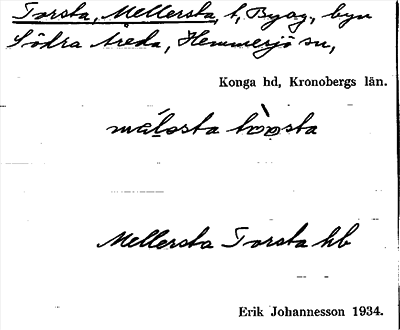 Torsta, Mellersta, t, Byag, byn
Södra Åreda, Hemmesjö sn,
Konga hd, Kronobergs län.
Mellersta Torsta hb
Erik Johannesson 1934.